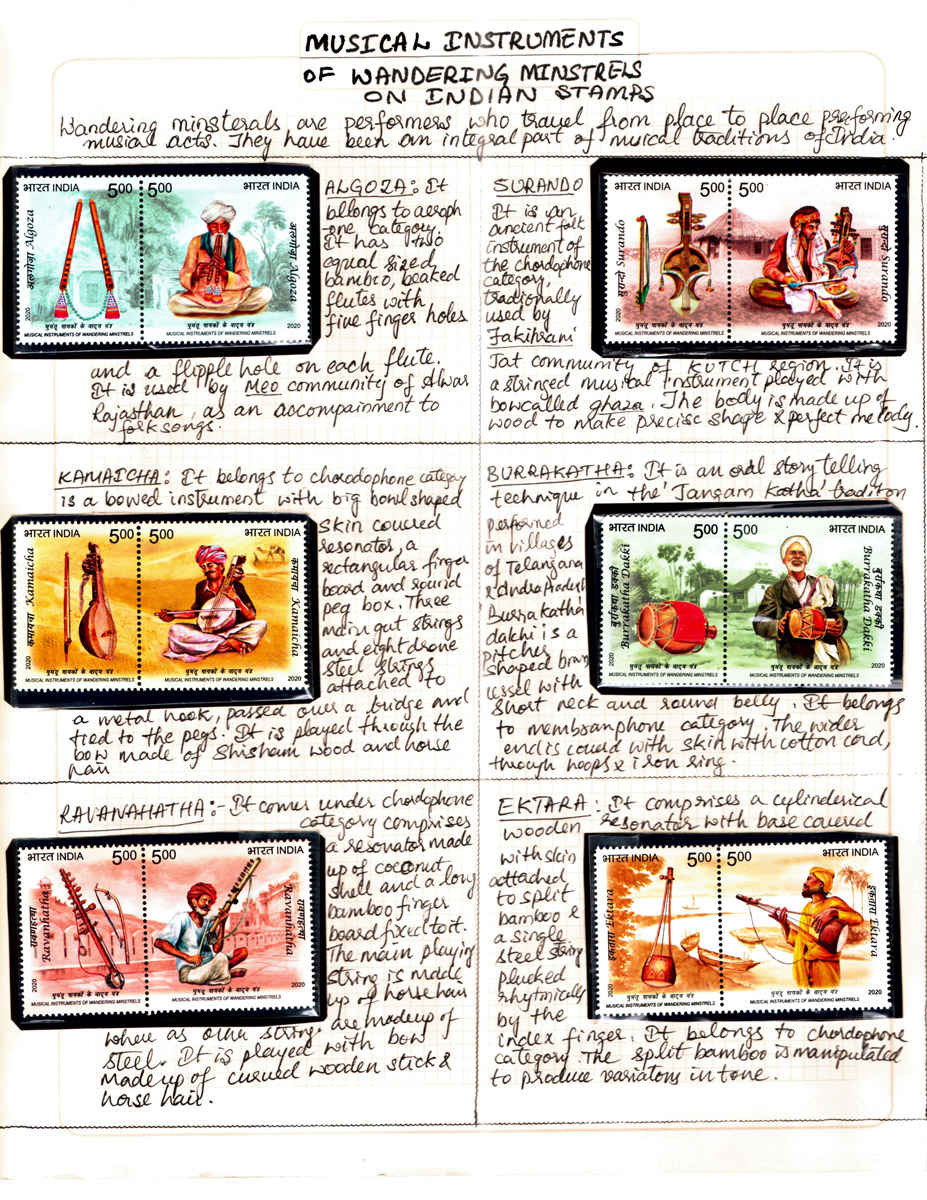 MUSICAL INSTRUMENTS
OF WANDERING MINSTRELS
ON INDIAN STAMPS
Wandering minsterals are performers who travel from place to place preforming
musical acts. They have been an integral part of musical traditions of India.
भारत INDIA 5.00 5.00 भारत INDIA
अलगोज़ा Algoza
अलगोज़ा Algoza
2020
घुमंतू गायकों के वाद्य यंत्र
घुमंतू गायकों के वाद्य यंत्र
MUSICAL INSTRUMENTS OF WANDERING MINSTRELS
MUSICAL INSTRUMENTS OF WANDERING MINSTRELS
2020
ALGOZA: It
bllongs to aeroph
-one category.
It has two
equal sized,
bamboo, beaked
flutes with
five finger holes
and a flipple hole on each flute.
It is used by Meo community of Alwar
Rajasthan, as an accompainment to
folksongs.
SURANDO
It is an
ancient folk
instrument of
the chordophone
category,
tradionally
used by
Fakihrani
Jat community of KUTCH region. It is
a stringed musical instrument played with
bowcalled ghaza. The body is made up of
wood to make precise shape & perfect melody.
भारत INDIA 5.00 5.00 भारत INDIA
सुरान्दो Surando
सुरान्दो Surando
2020
घुमंतू गायकों के वाद्य यंत्र
घुमंतू गायकों के वाद्य यंत्र
MUSICAL INSTRUMENTS OF WANDERING MINSTRELS
MUSICAL INSTRUMENTS OF WANDERING MINSTRELS
2020
KAMAICHA: It belongs to chorodophone category
is a bowed instrument with big bowl shaped
skin coured
resonator, a
rectangular finger
board and round
peg box. Three
main gut strings
and eight drone
steel strings
attached to
a metal hook, passed over a bridge and
tied to the pegs. It is played through the
bow made of Shisham wood and horse
hair
भारत INDIA 5.00 5.00 भारत INDIA
कमायचा Kamaicha
कमायचा Kamaicha
2020
घुमंतू गायकों के वाद्य यंत्र
घुमंतू गायकों के वाद्य यंत्र
MUSICAL INSTRUMENTS OF WANDERING MINSTRELS
MUSICAL INSTRUMENTS OF WANDERING MINSTRELS
2020
BURRAKATHA: It is an oral story telling
technique in the 'Jangam Katha' tradition
performed
in villages
of Telangana
& Andra Pradesh
Burrakatha
dakhi is a
Pitcher
shaped brown
vessel with
short neck and round belly. It belongs
to membranphone category. The wider
end is coured with skin with cotton cord,
through hoops & iron ring.
भारत INDIA 5.00 5.00 भारत INDIA
बुर्राकथा डक्की
Burrakatha Dakki
बुर्राकथा डक्की
Burrakatha Dakki
2020
घुमंतू गायकों के वाद्य यंत्र
घुमंतू गायकों के वाद्य यंत्र
MUSICAL INSTRUMENTS OF WANDERING MINSTRELS
MUSICAL INSTRUMENTS OF WANDERING MINSTRELS
2020
RAVANAHATHA:- It comes under chordophone
category comprises
a resonator made
up of coconut
shell and a long
bamboo finger
board fixed to it.
The main playing
string is made
up of horse hair
where as other strings are made up of
steel. It is played with bow
made up of curved wooden stick &
horse hair.
भारत INDIA 5.00 5.00 भारत INDIA
रावणहत्था
Ravanhatha
रावणहत्था
Ravanhatha
2020
घुमंतू गायकों के वाद्य यंत्र
घुमंतू गायकों के वाद्य यंत्र
MUSICAL INSTRUMENTS OF WANDERING MINSTRELS
MUSICAL INSTRUMENTS OF WANDERING MINSTRELS
2020
EKTARA: It comprises a cylinderical
wooden resonator with base covered
with skin
attached
to split
bamboo &
a single
steel string
plucked
rhytmically
by the
index finger. It belongs to chordophone
category. The split bamboo is manipulated
to produce variatons in tone.
भारत INDIA 5.00 5.00 भारत INDIA
इकतारा Ektara
इकतारा Ektara
2020
घुमंतू गायकों के वाद्य यंत्र
घुमंतू गायकों के वाद्य यंत्र
MUSICAL INSTRUMENTS OF WANDERING MINSTRELS
MUSICAL INSTRUMENTS OF WANDERING MINSTRELS
2020